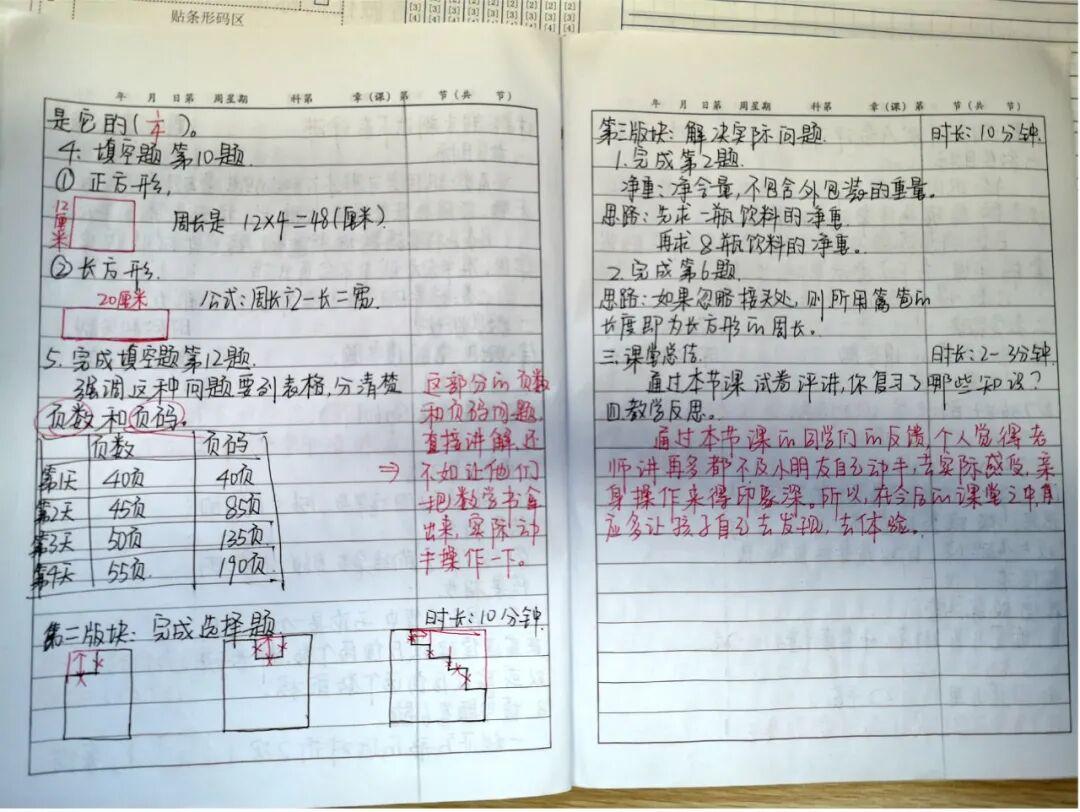 贴条形码区
[3] [3] [3] [3] [3] [3] [3]
[4] [4] [4] [4] [4] [4] [4]
年 月 日第 周星期 科第 章(课)第 节(共 节)
是它的(1/4)。
4. 填空题第10题.
① 正方形,
12厘米
周长是 12×4=48(厘米)
② 长方形.
20厘米
公式:周长÷2-长=宽.
5. 完成填空题第12题.
强调这种问题要列表格,分清楚
页数和页码。
页数 页码
第1天 40页 40页
第2天 45页 85页
第3天 50页 135页
第4天 55页 190页
这部分的页数
和页码问题,
直接讲解,还
⇒ 不如让他们
把数学书拿
出来,实际动
手操作一下。
第二版块:完成选择题 时长:10分钟.
年 月 日第 周星期 科第 章(课)第 节(共 节)
第三版块:解决实际问题. 时长:10分钟.
1.完成第2题.
净重:净含量,不包含外包装的重量。
思路:先求一瓶饮料的净重.
再求8瓶饮料的净重。
2.完成第6题.
思路:如果忽略接头处,则所用篱笆的
长度即为长方形的周长。
三.课堂总结. 时长:2-3分钟.
通过本节课试卷评讲,你复习了哪些知识?
四.教学反思。
通过本节课的同学们的反馈,个人觉得老
师讲再多都不及小朋友自己动手,去实际感受,亲
身操作来得印象深。所以,在今后的课堂之中更
应多让孩子自己去发现,去体验。